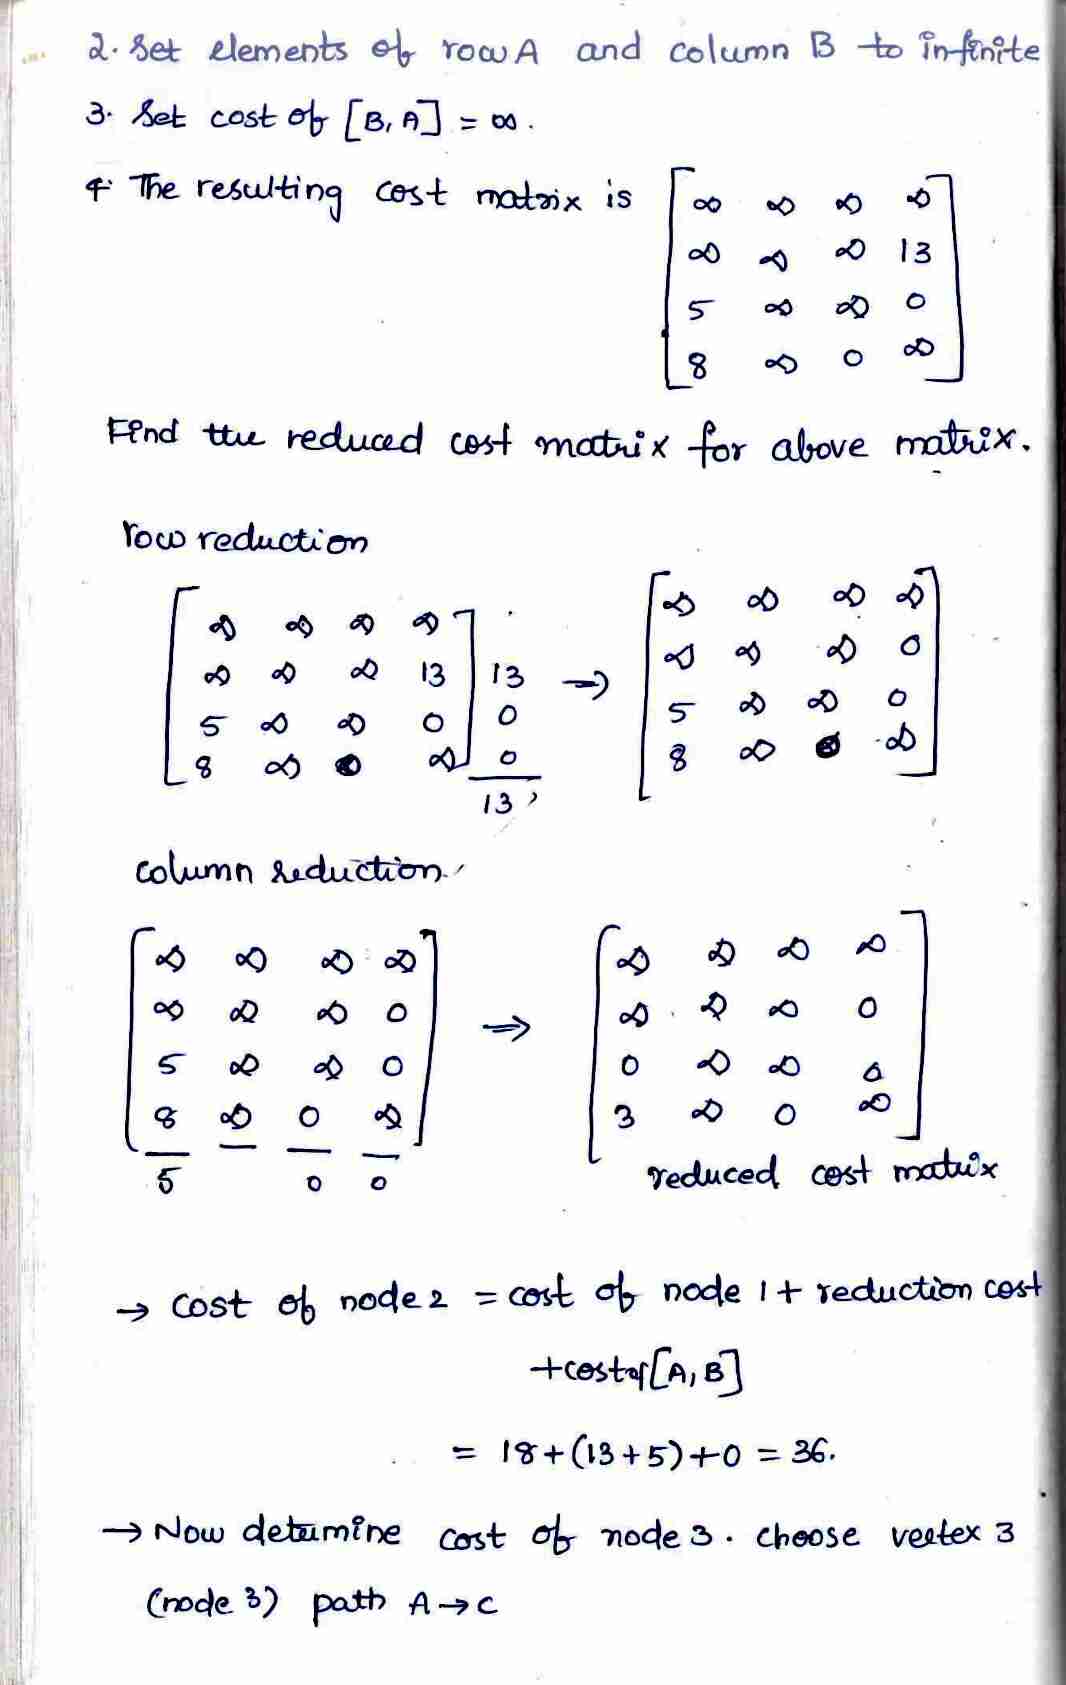 2. Set elements of row A and column B to infinite
3. Set cost of [B, A] = ∞.
4. The resulting cost matrix is
∞ ∞ ∞ ∞
∞ ∞ ∞ 13
5 ∞ ∞ 0
8 ∞ 0 ∞
Find the reduced cost matrix for above matrix.
row reduction
∞ ∞ ∞ ∞
∞ ∞ ∞ 13 13
5 ∞ ∞ 0 0
8 ∞ ∞ 0
13
→
∞ ∞ ∞ ∞
∞ ∞ ∞ 0
5 ∞ ∞ 0
8 ∞ ∞
column reduction
∞ ∞ ∞ ∞
∞ ∞ ∞ 0
5 ∞ ∞ 0
8 ∞ 0 ∞
5 0 0
⇒
∞ ∞ ∞ ∞
∞ ∞ ∞ 0
0 ∞ ∞ 0
3 ∞ 0 ∞
reduced cost matrix
→ cost of node 2 = cost of node 1 + reduction cost
+ cost of [A, B]
= 18 + (13 + 5) + 0 = 36.
→ Now determine cost of node 3. choose vertex 3
(node 3) path A → C